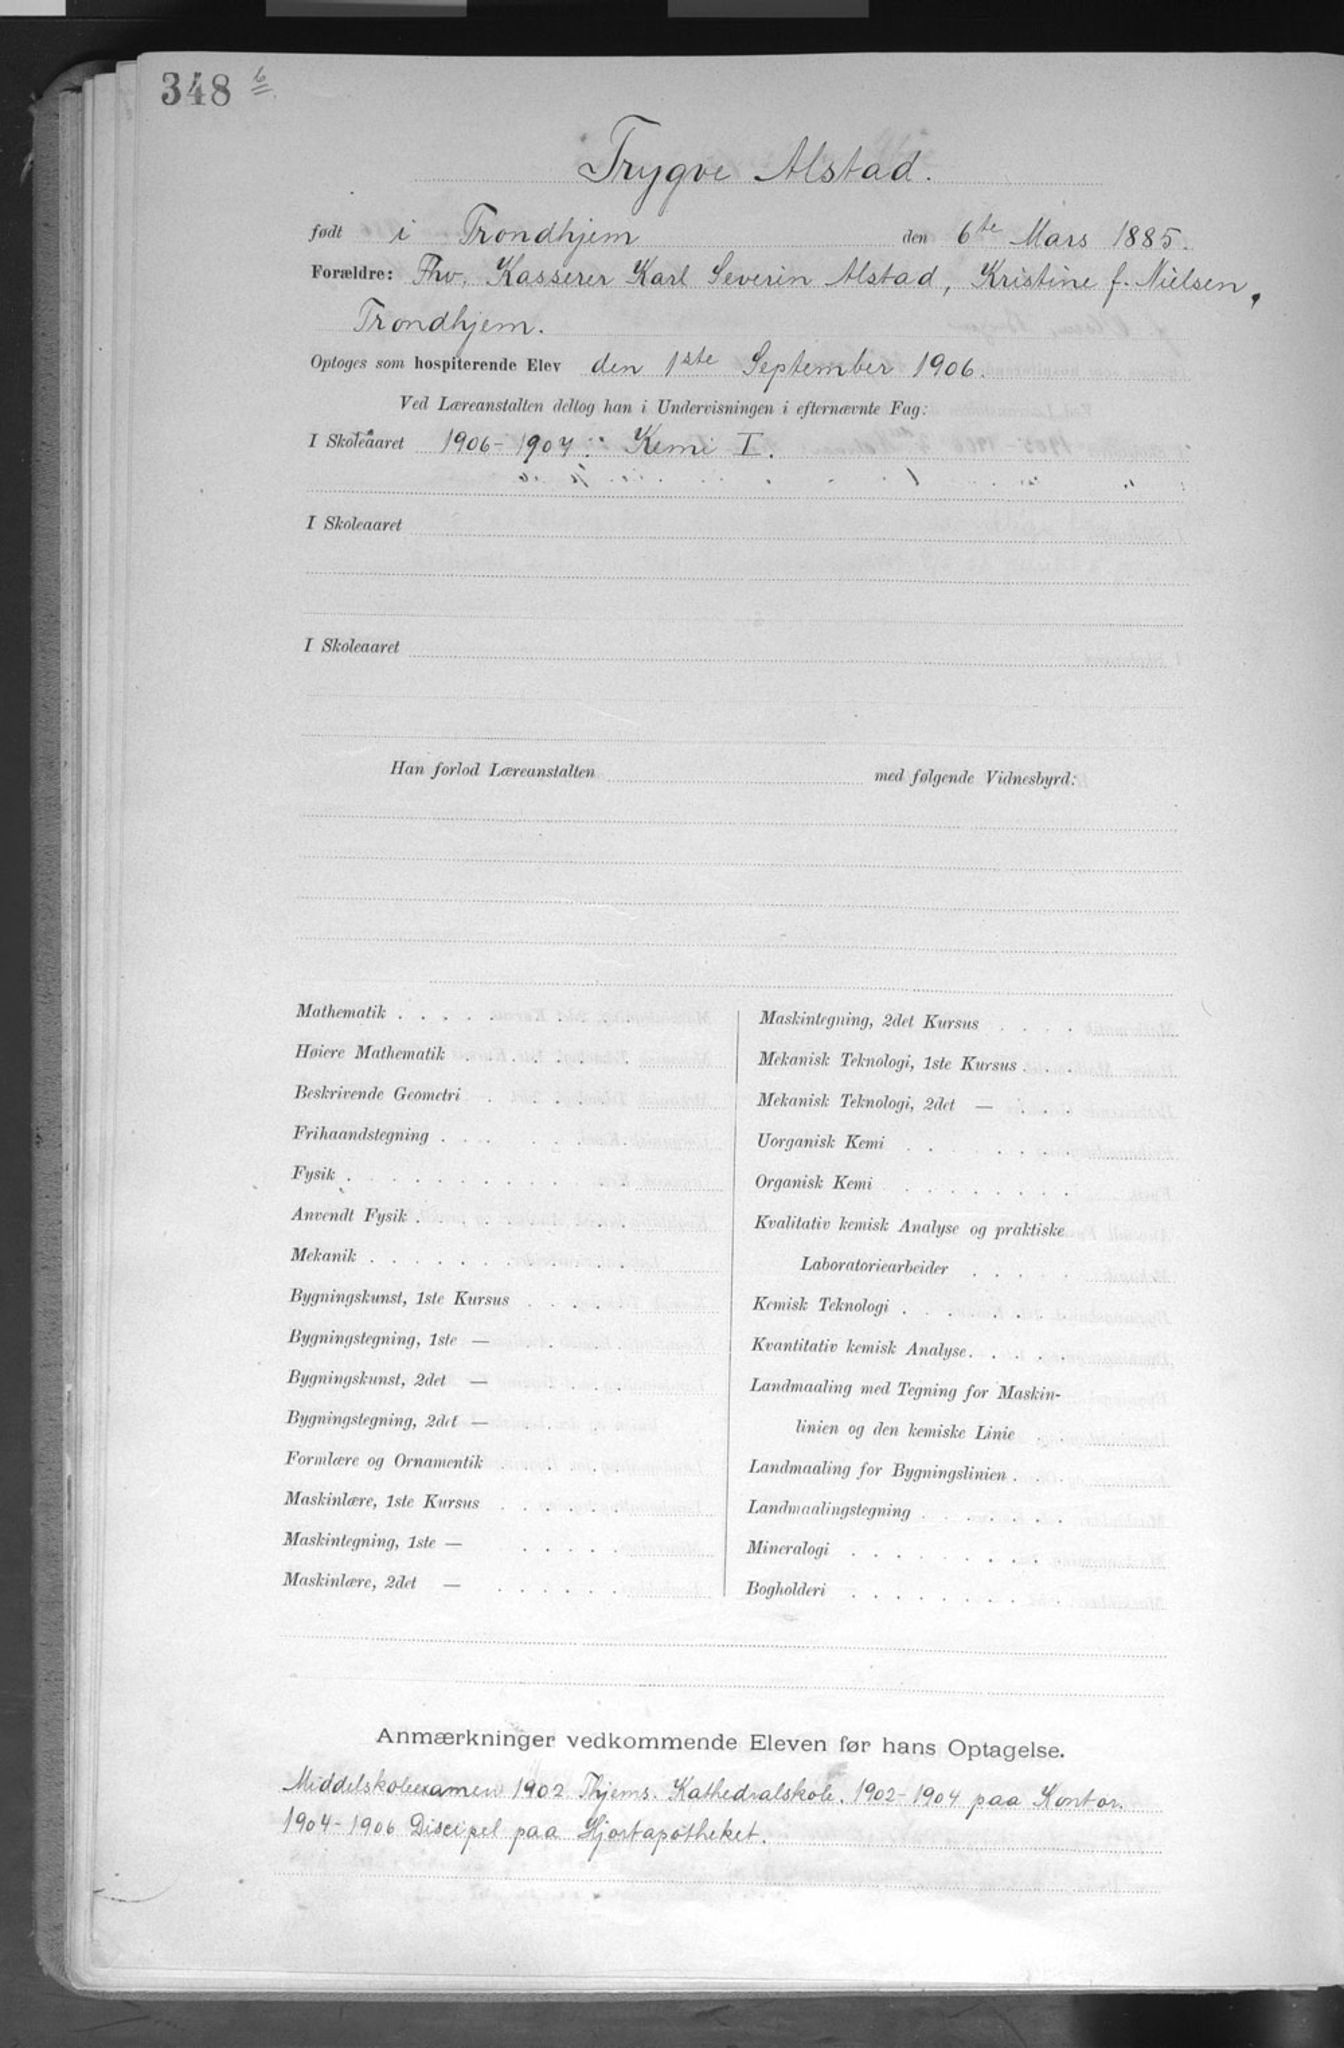 348 b
Trygve Alstad.
født i Trondhjem den 6te Mars 1885.
Forældre: Fhv. Kasserer Karl Severin Alstad, Kristine f. Nielsen,
Trondhjem.
Optoges som hospiterende Elev den 1ste September 1906.
Ved Læreanstalten deltog han i Undervisningen i efternævnte Fag:
I Skoleaaret 1906-1907: Kemi I.
I Skoleaaret
I Skoleaaret
Han forlod Læreanstalten med følgende Vidnesbyrd:
Mathematik
Høiere Mathematik
Beskrivende Geometri
Frihaandstegning
Fysik
Anvendt Fysik
Mekanik
Bygningskunst, 1ste Kursus
Bygningstegning, 1ste —
Bygningskunst, 2det —
Bygningstegning, 2det —
Formlære og Ornamentik
Maskinlære, 1ste Kursus
Maskintegning, 1ste —
Maskinlære, 2det —
Maskintegning, 2det Kursus
Mekanisk Teknologi, 1ste Kursus
Mekanisk Teknologi, 2det —
Uorganisk Kemi
Organisk Kemi
Kvalitativ kemisk Analyse og praktiske
Laboratoriearbeider
Kemisk Teknologi
Kvantitativ kemisk Analyse
Landmaaling med Tegning for Maskin-
linien og den kemiske Linie
Landmaaling for Bygningslinien
Landmaalingstegning
Mineralogi
Bogholderi
Anmærkninger vedkommende Eleven før hans Optagelse.
Middelskoleexamen 1902 Thjems. Kathedralskole. 1902-1904 paa Kontor.
1904-1906 Discipel paa Hjortapotheket.